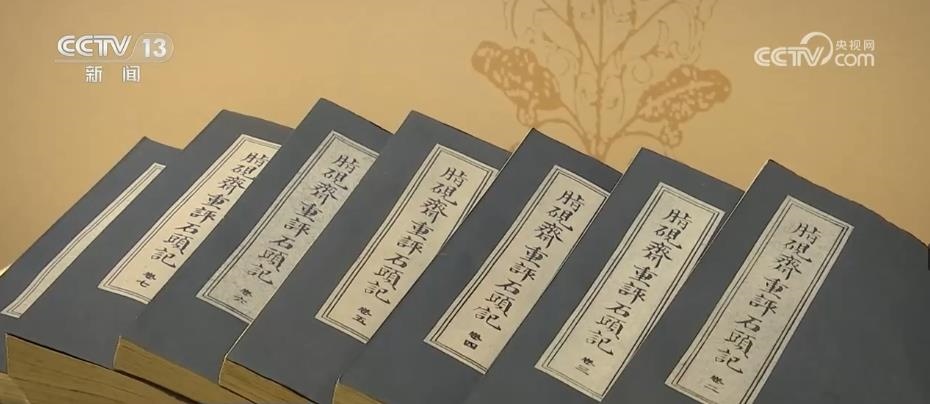 CCTV 13
新闻
CCTV 央视网
com
脂硯齋重評石頭記 卷七
脂硯齋重評石頭記 卷六
脂硯齋重評石頭記 卷五
脂硯齋重評石頭記 卷四
脂硯齋重評石頭記 卷三
脂硯齋重評石頭記 卷二